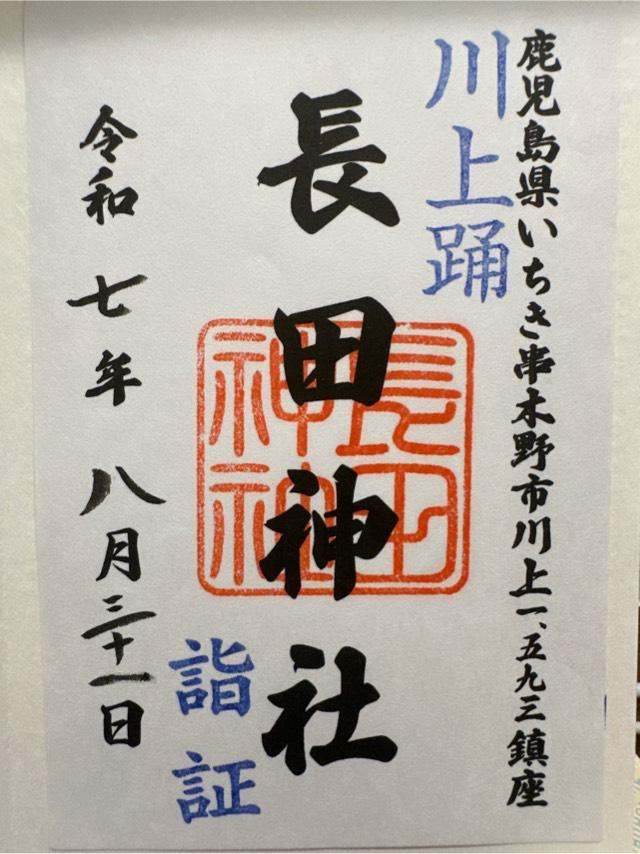 鹿児島県いちき串木野市川上一、五九三鎮座
川上踊
長田神社
長田神社
詣証
令和七年八月三十一日